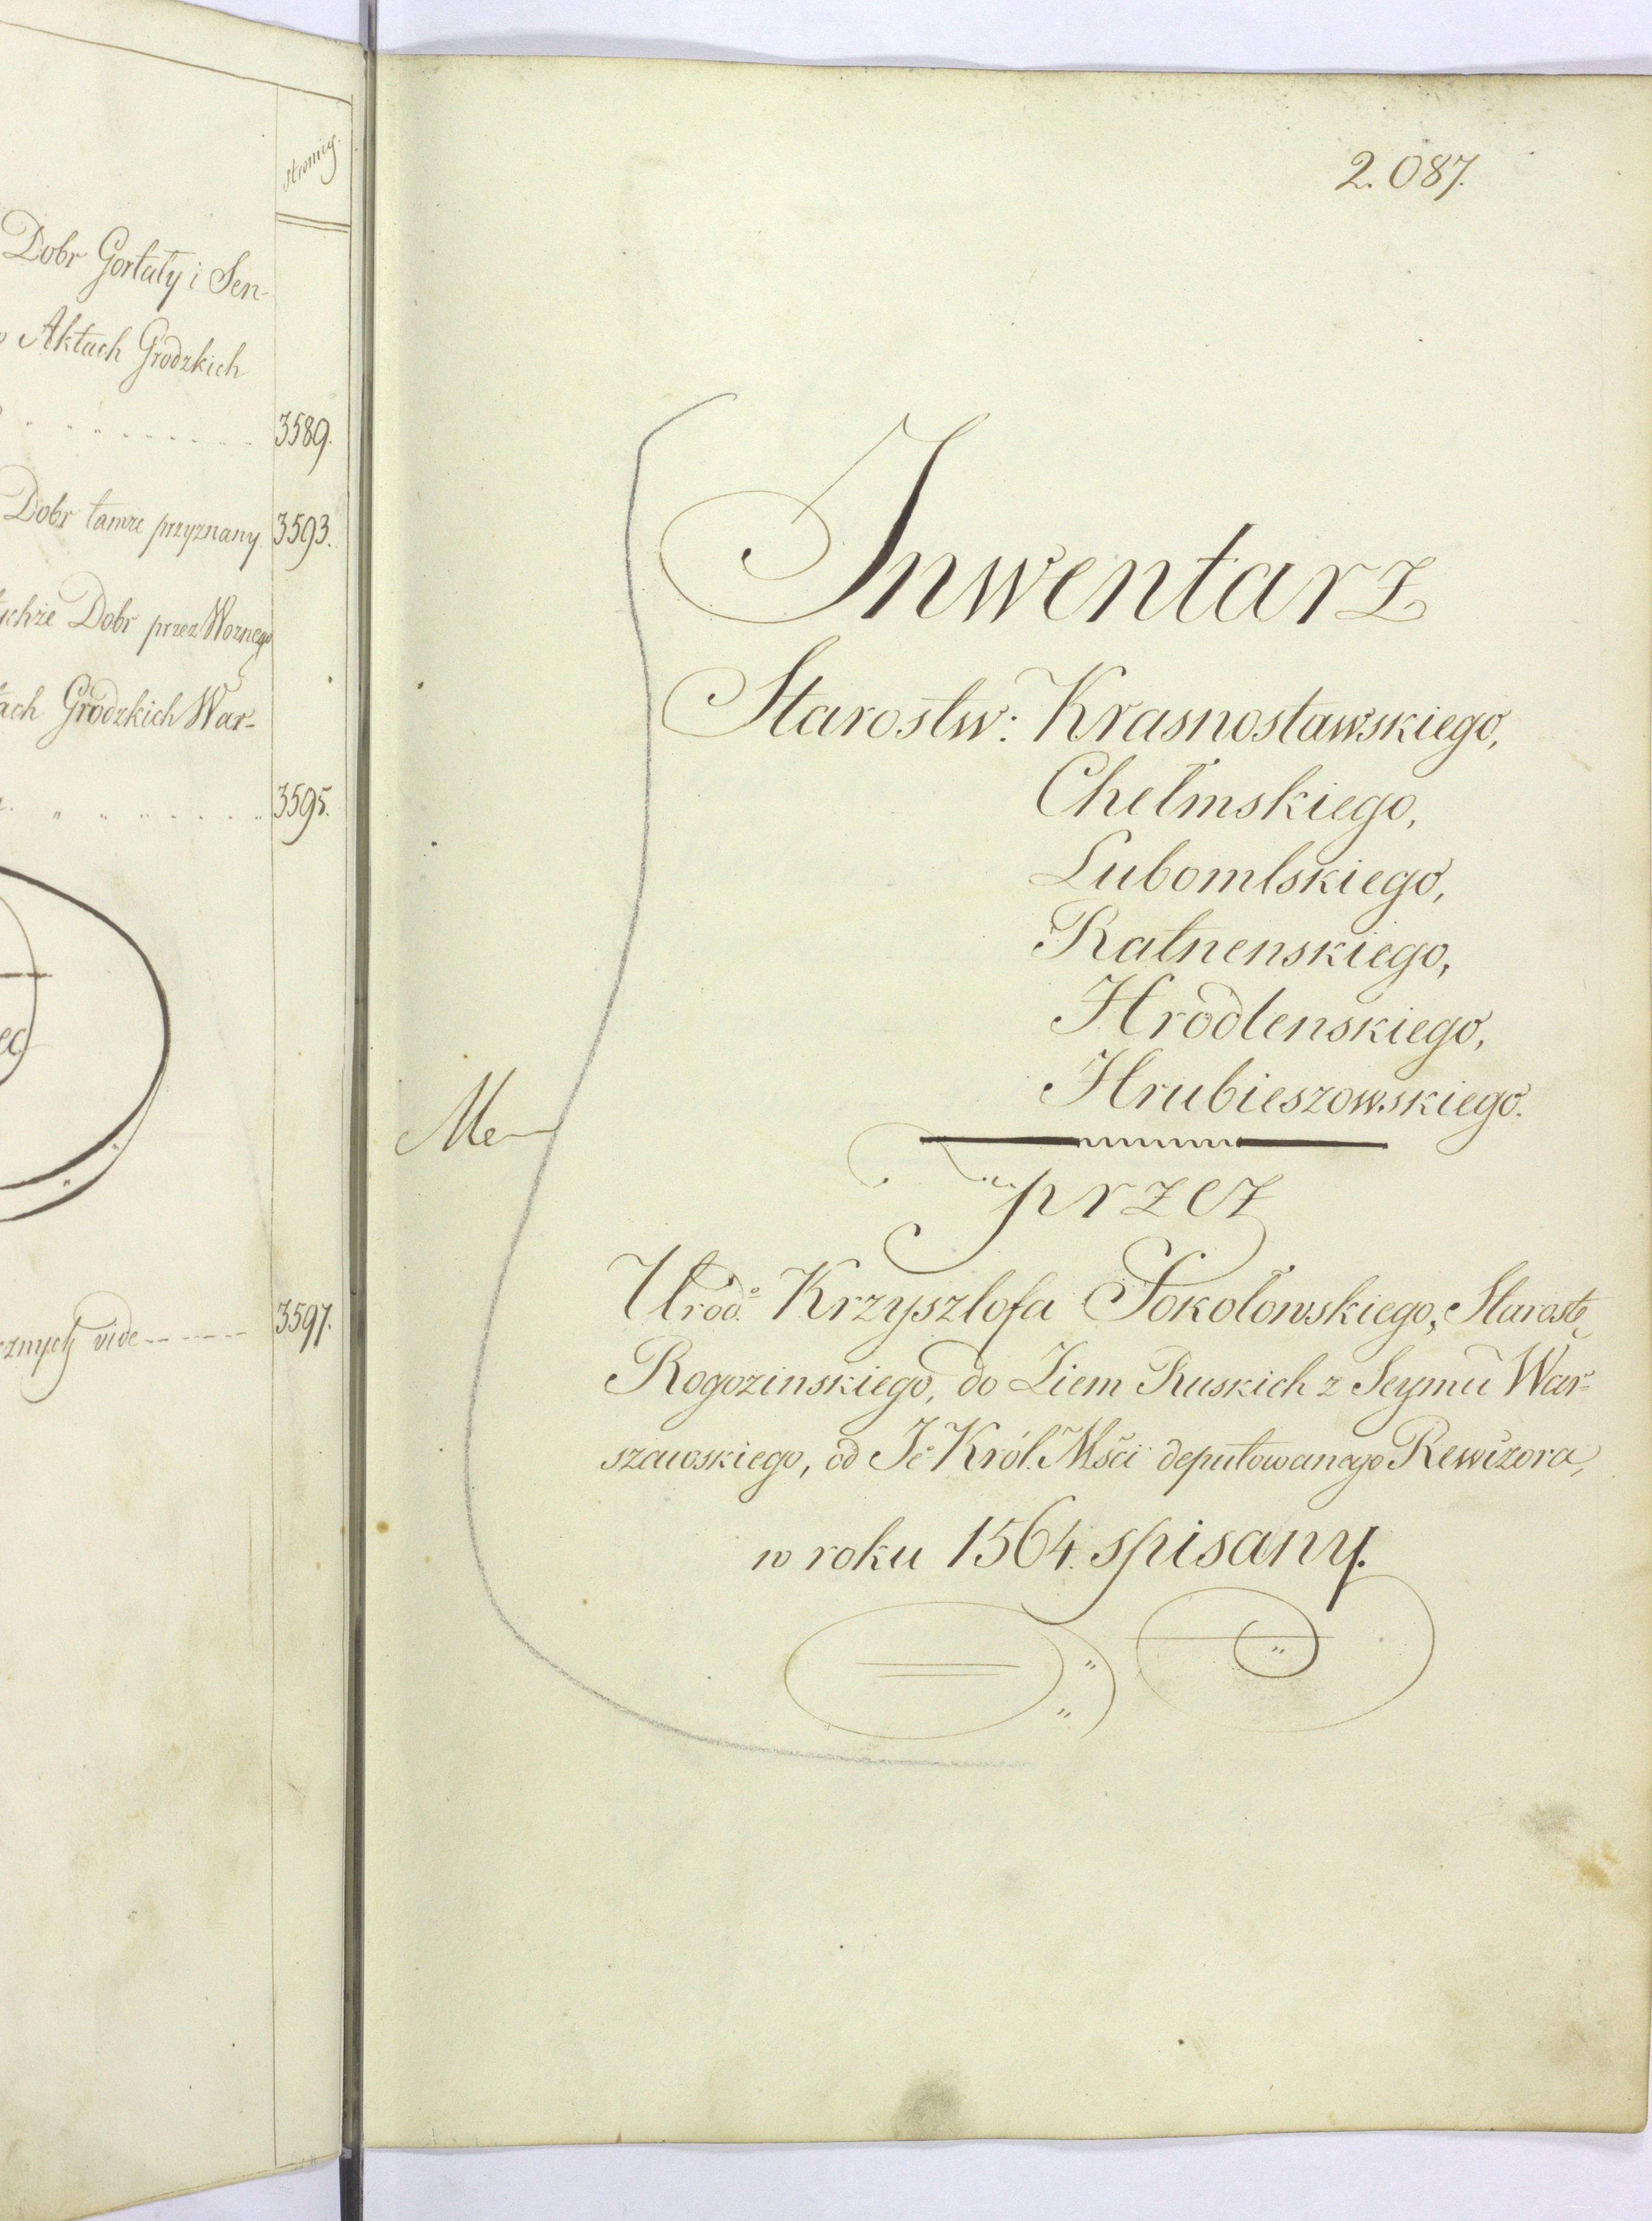 stronicy.
Dobr Gortaty i Sen-
Aktach Grodzkich
3589.
Dobr tamże przyznany 3593.
tychże Dobr przez Woznego
tach Grodzkich War-
3595.
cznych vide 3597.
2.087.
Inwentarz
Starostw: Krasnostawskiego,
Chełmskiego,
Lubomlskiego,
Ratnenskiego,
Hrodlenskiego,
Hrubieszowskiego.
przez
Urodº Krzysztofa Sokołowskiego, Starostę
Rogozinskiego, do Ziem Ruskich z Seymu War=
szawskiego, od Jº Król. Mści deputowanego Rewizora,
w roku 1564. spisany.